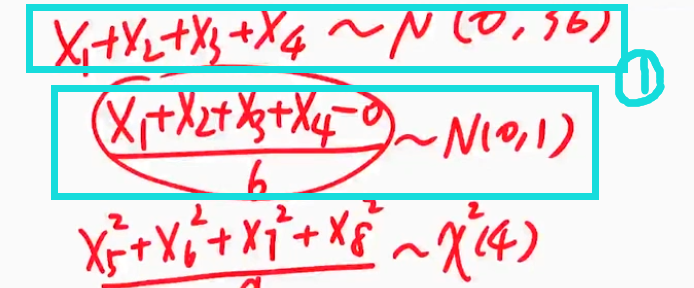 X₁+X₂+X₃+X₄ ~ N(0, 36)
①
(X₁+X₂+X₃+X₄-0)/6 ~ N(0,1)
X₅²+X₆²+X₇²+X₈² ~ χ²(4)